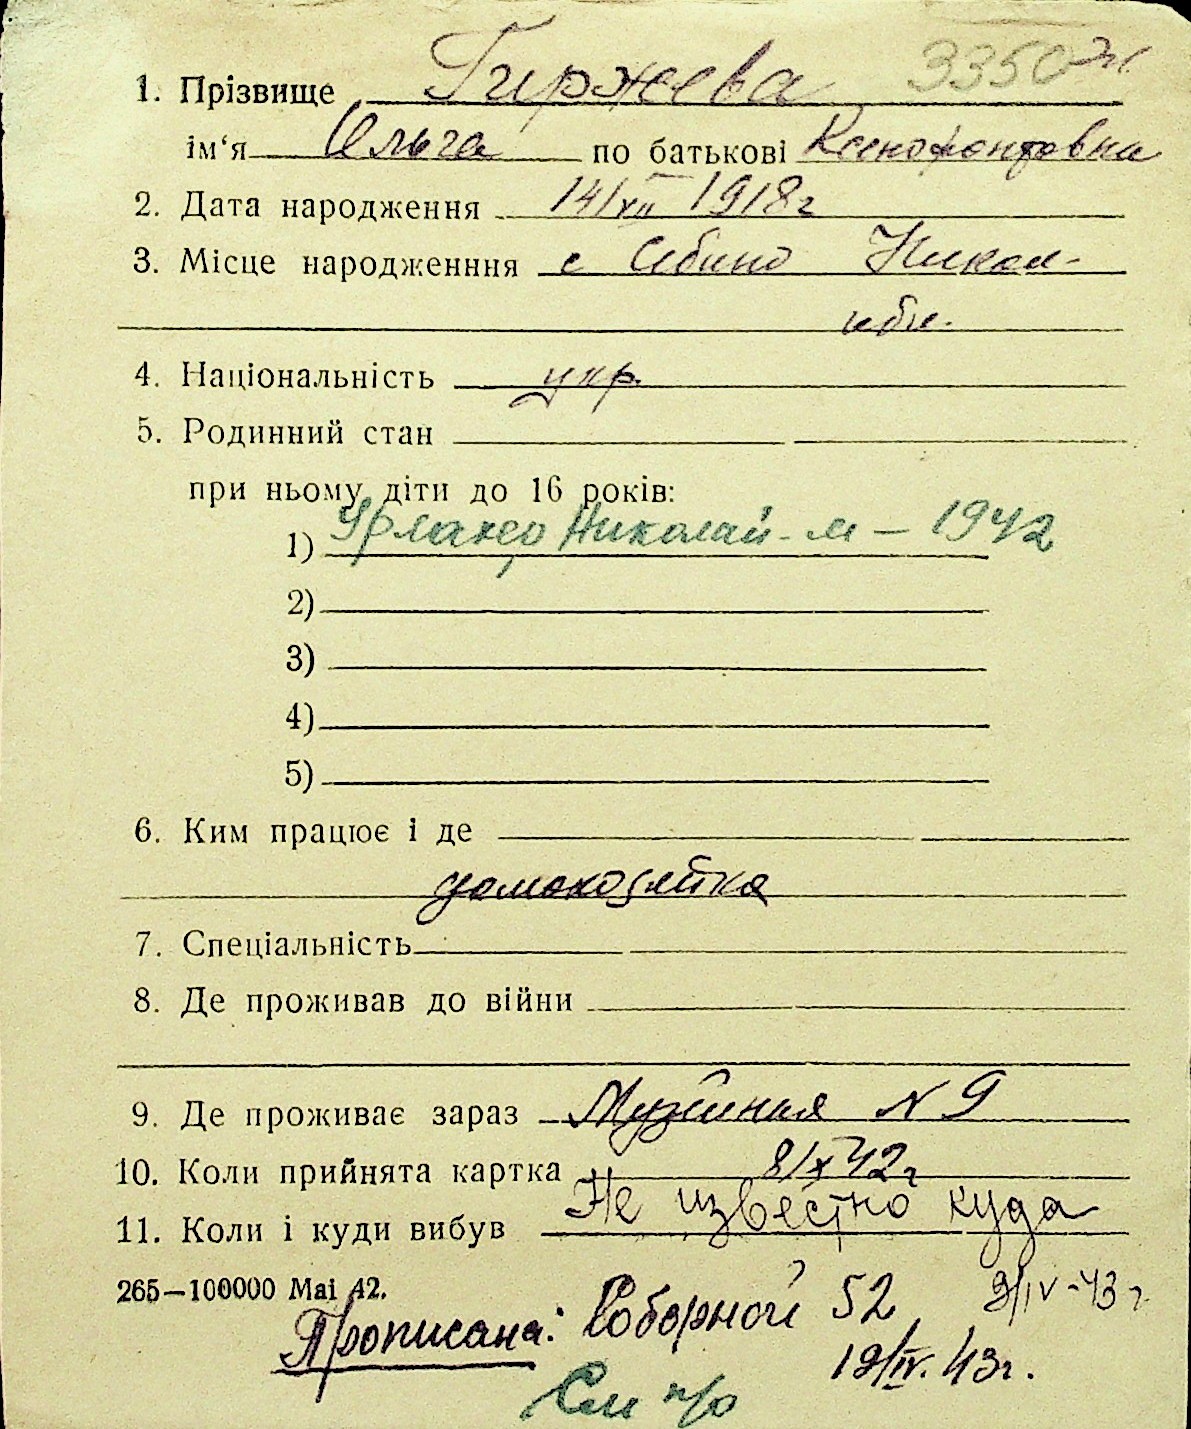 3350 Ж
1. Прізвище Гиржева
ім‘я Ольга по батькові Ксенофонтовна
2. Дата народження 14/XII 1918 г
3. Місце народженння с Себино Никол-
обл.
4. Національність укр.
5. Родинний стан
при ньому діти до 16 років:
1) Николай - м – 1942
2)
3)
4)
5)
6. Ким працює і де
домохозяйка
7. Спеціальність
8. Де проживав до війни
9. Де проживає зараз Музейная N 9
10. Коли прийнята картка 8/X 42 г
11. Коли і куди вибув Не известно куда
265—100000 Mai 42. 9/IV-43 г.
Прописана: Соборной 52
19/IV. 43г.
См н/о